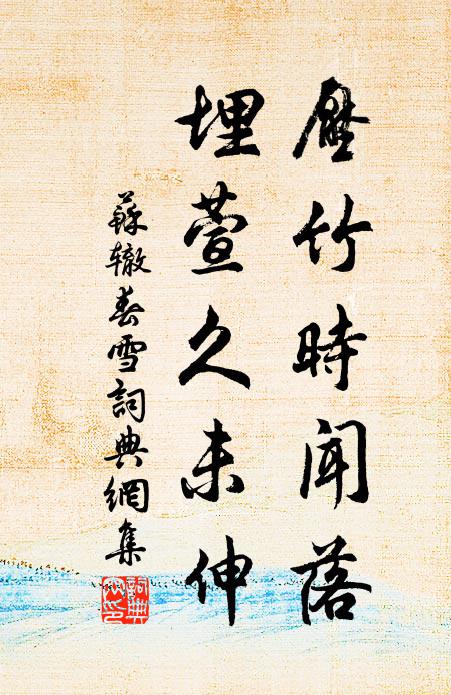 壓竹時聞落
埋萱久未伸
蘇辙春雪詞典網集